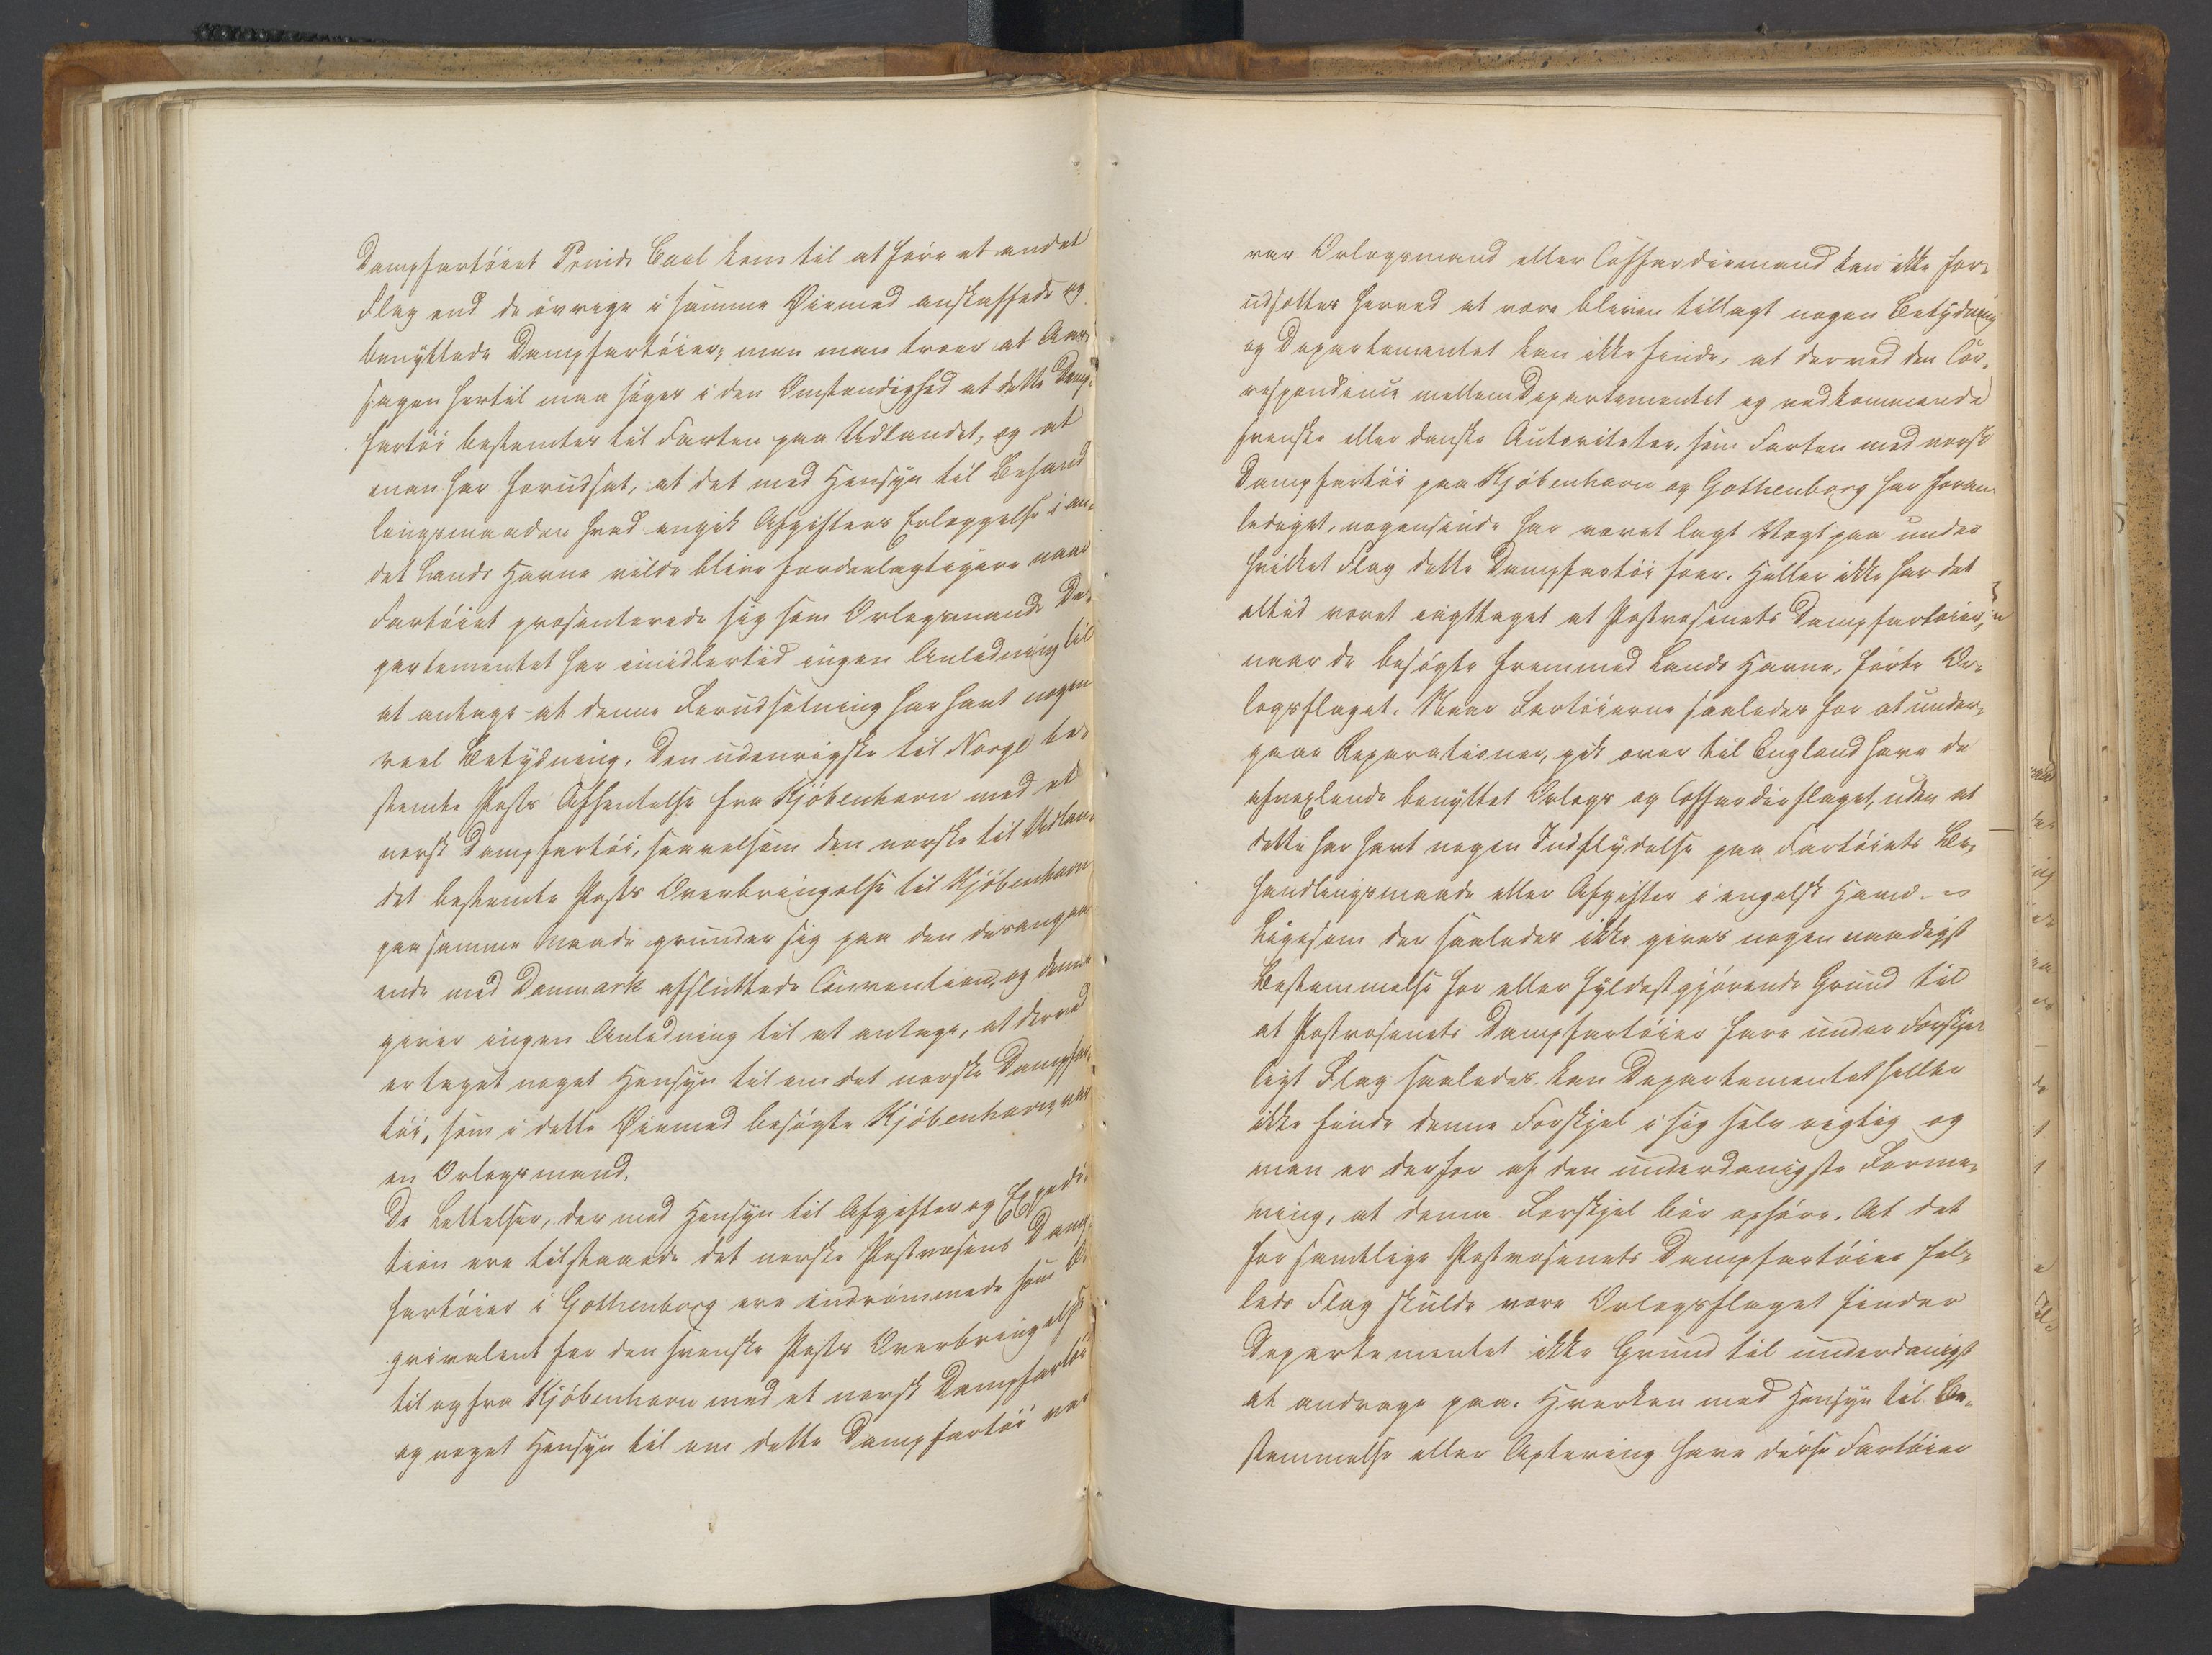 Dampfartöiet Prinds Carl kom til at före et andet
Flag end de övrige i samme Øiemed anskaffede og
benyttede Dampfartöier; men man troer at Aar-
sagen hertil maa söges i den Omstændighed at dette Damp-
fartöi bestemtes til Farten paa Udlandet, og at
man har forudsat, at det med Hensyn til Behand
lingsmaaden hvad angik Afgifters Erlæggelse i an-
det Lands Havne vilde blive fordeelagtigere naar
Fartöiet præsenterede sig som Orlogsmand. De-
partementet har imidlertid ingen Anledning til
at antage at denne Forudsætning har havt nogen
reel Betydning. Den udenrigske til Norge be-
stemte Posts Afhentelse fra Kjöbenhavn med et
norsk Dampfartöi, saavelsom den norske til Udlan-
det bestemte Posts Overbringelse til Kjöbenhavn
paa samme Maade grunder sig paa den derangaa
ende med Danmark afsluttede Convention, og denne
giver ingen Anledning til at antage, at derved
er taget noget Hensyn til om det norske Dampfar-
töi, som i dette Øiemed besögte Kjöbenhavn, var
en Orlogsmand.
De Lettelser, der med Hensyn til Afgifter og Expedi-
tion ere tilstaaede det norske Postvæsens Damp-
fartöier i Gothenborg ere indrömmede som Æ-
qvivalent for den svenske Posts Overbringelse
til og fra Kjöbenhavn med et norsk Dampfartöi
og noget Hensyn til om dette Dampfartöi var
var Orlogsmand eller Coffardiemand kan ikke for-
udsættes herved at være bleven tillagt nogen Betydning
og Departementet kan ikke finde, at der ved den Cor-
respondence mellem Departementet og vedkommende
svenske eller danske Autoriteter, som Farten med norsk
Dampfartöi paa Kjöbenhavn og Gothenborg har foran
lediget, nogensinde har været lagt Vægt paa under
hvilket Flag dette Dampfartöi foer. Heller ikke har det
altid været iagttaget at Postvæsenets Dampfartöier,
naar de besögte fremmed Lands Havne, förte Or-
logsflaget. Naar Fartöierne saaledes for at under-
gaae Reparationer, gik over til England have de
afvexlende benyttet Orlogs og Coffardieflaget, uden at
dette har havt nogen Indflydelse paa Fartöiets Be-
handlingsmaade eller Afgifter i engelsk Havn.
Ligesom der saaledes ikke gives nogen naadigst
Bestemmelse for eller fyldestgjörende Grund til
at Postvæsenets Dampfartöier fare under forskjel
ligt Flag saaledes kan Departementet heller
ikke finde denne Forskjel i sig selv rigtig og
man er derfor af den underdanigste Forme-
ning, at denne Forskjel bör ophöre. At det
for samtlige Postvæsenets Dampfartöier fæl-
leds Flag skulde være Orlogsflaget finder
Departementet ikke Grund til underdanigst
at andrage paa. Hverken med Hensyn til Be-
stemmelse eller Aptering have disse Fartöier